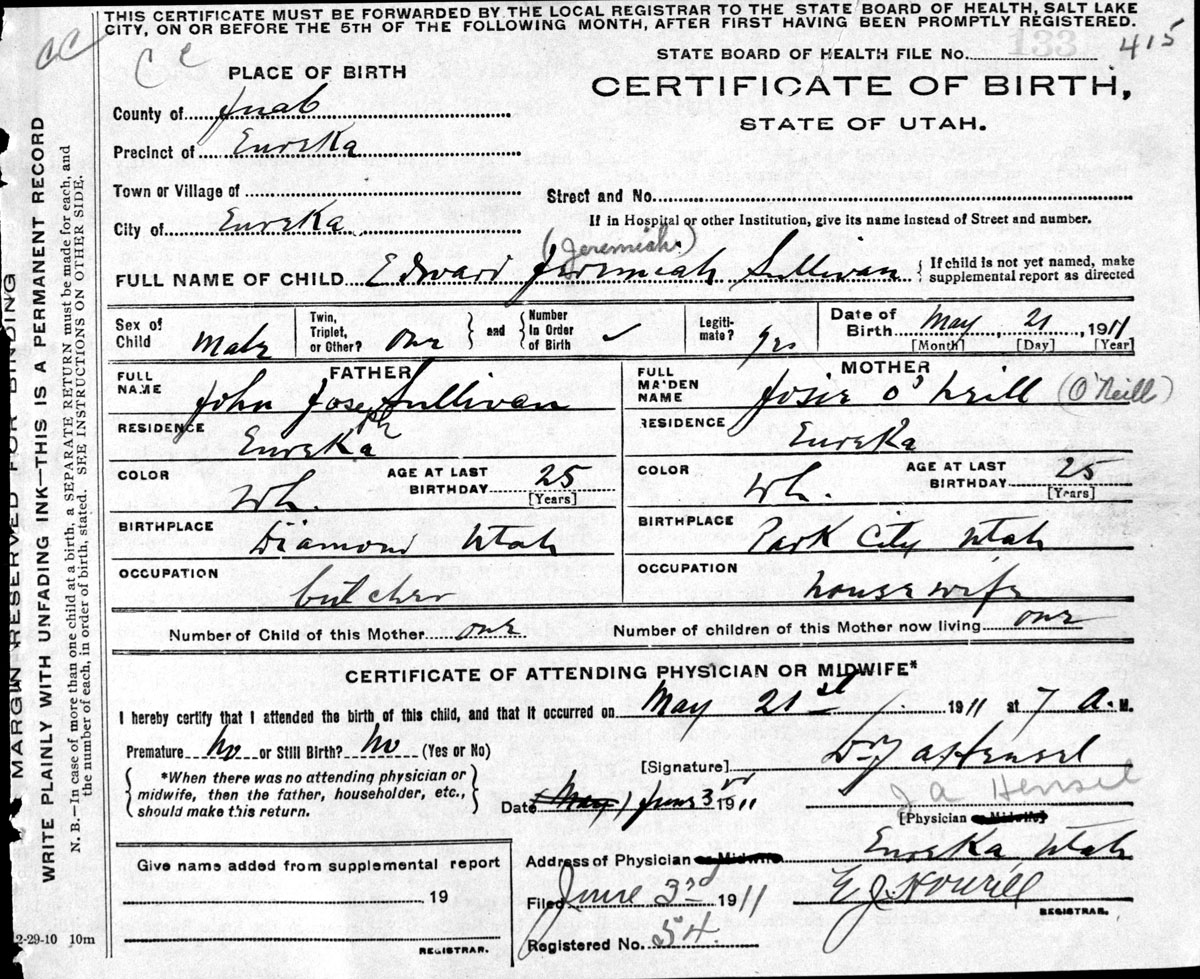 THIS CERTIFICATE MUST BE FORWARDED BY THE LOCAL REGISTRAR TO THE STATE BOARD OF HEALTH, SALT LAKE
CITY, ON OR BEFORE THE 5TH OF THE FOLLOWING MONTH, AFTER FIRST HAVING BEEN PROMPTLY REGISTERED.
CC
CC
133
415
STATE BOARD OF HEALTH FILE No.
PLACE OF BIRTH
CERTIFICATE OF BIRTH,
STATE OF UTAH.
County of Juab
Precinct of Eureka
Town or Village of
Street and No.
City of Eureka
If in Hospital or other Institution, give its name instead of Street and number.
(Jeremiah.)
FULL NAME OF CHILD Edward Jeremiah Sullivan
{ If child is not yet named, make
supplemental report as directed
Sex of Child Male
Twin, Triplet, or Other? One } and { Number In Order of Birth ✓
Legiti-mate? yes
Date of Birth May 21, 1911
[Month] [Day] [Year]
FATHER
FULL NAME John Joseph Sullivan
RESIDENCE Eureka
COLOR Wh.
AGE AT LAST BIRTHDAY 25
[Years]
BIRTHPLACE Diamond Utah
OCCUPATION butcher
MOTHER
FULL MAIDEN NAME Josie O'Neill (O'Neill)
RESIDENCE Eureka
COLOR Wh.
AGE AT LAST BIRTHDAY 25
[Years]
BIRTHPLACE Park City Utah
OCCUPATION housewife
Number of Child of this Mother one
Number of children of this Mother now living one
CERTIFICATE OF ATTENDING PHYSICIAN OR MIDWIFE*
I hereby certify that I attended the birth of this child, and that it occurred on May 21st 1911 at 7 A. M.
Premature No or Still Birth? No (Yes or No)
{ *When there was no attending physician or
midwife, then the father, householder, etc.,
should make this return. }
[Signature] Dr J A Hensel
J A Hensel
Date May June 3rd 1911
[Physician or Midwife]
Address of Physician or Midwife Eureka, Utah
Give name added from supplemental report
19
REGISTRAR.
Filed June 3rd 1911
REGISTRAR.
Registered No. 54.
2-29-10 10m
MARGIN RESERVED FOR BINDING
WRITE PLAINLY WITH UNFADING INK—THIS IS A PERMANENT RECORD
N. B.—In case of more than one child at a birth, a SEPARATE RETURN must be made for each, and
the number of each, in order of birth, stated. SEE INSTRUCTIONS ON OTHER SIDE.